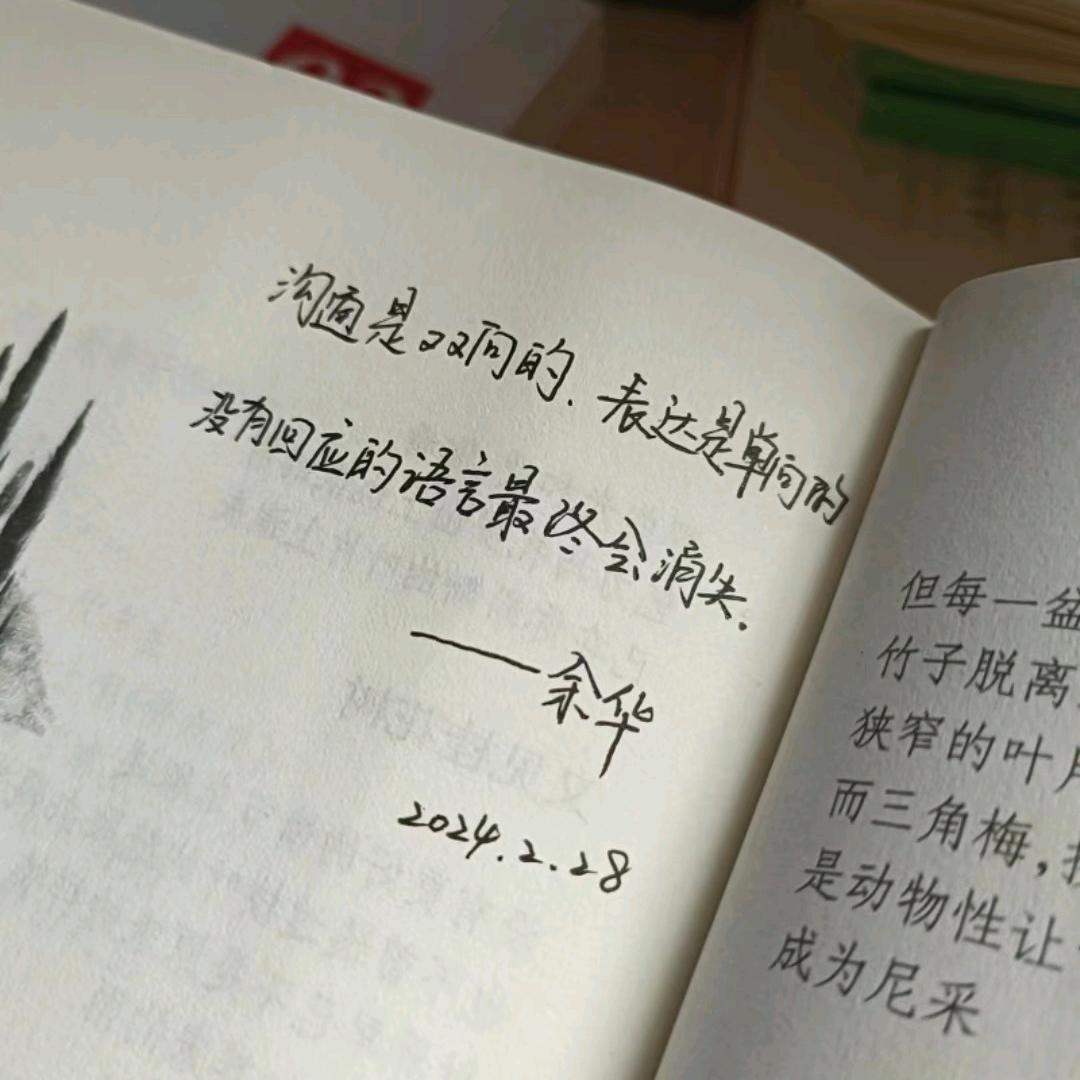 沟通是双向的.表达是单向的
没有回应的语言最终会消失.
——余华
2024.2.28
但每一盆
竹子脱离
狭窄的叶片
而三角梅,
是动物性让
成为尼采